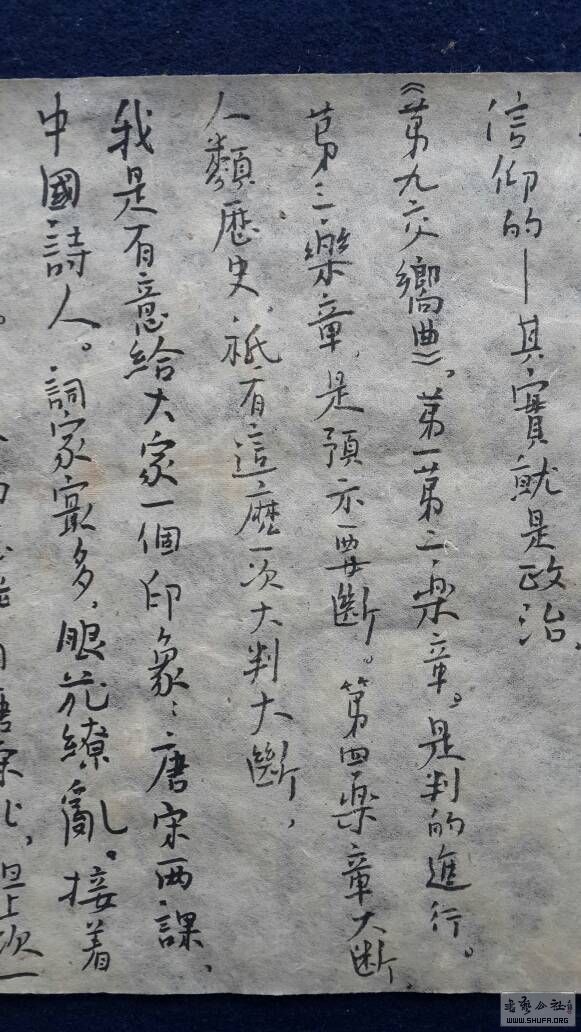 信仰的—其實就是政治,
《第九交嚮曲》。第一第二樂章。是判的進行。
第三樂章,是預示要斷。第四樂章大断,
人類歷史,祇有這麽一次大判大斷,
我是有意給大家一個印象:唐宋兩課,
中國詩人。詞家最多,眼花繚亂。接着
唐宋 但上次一
WWW.SHUFA.ORG